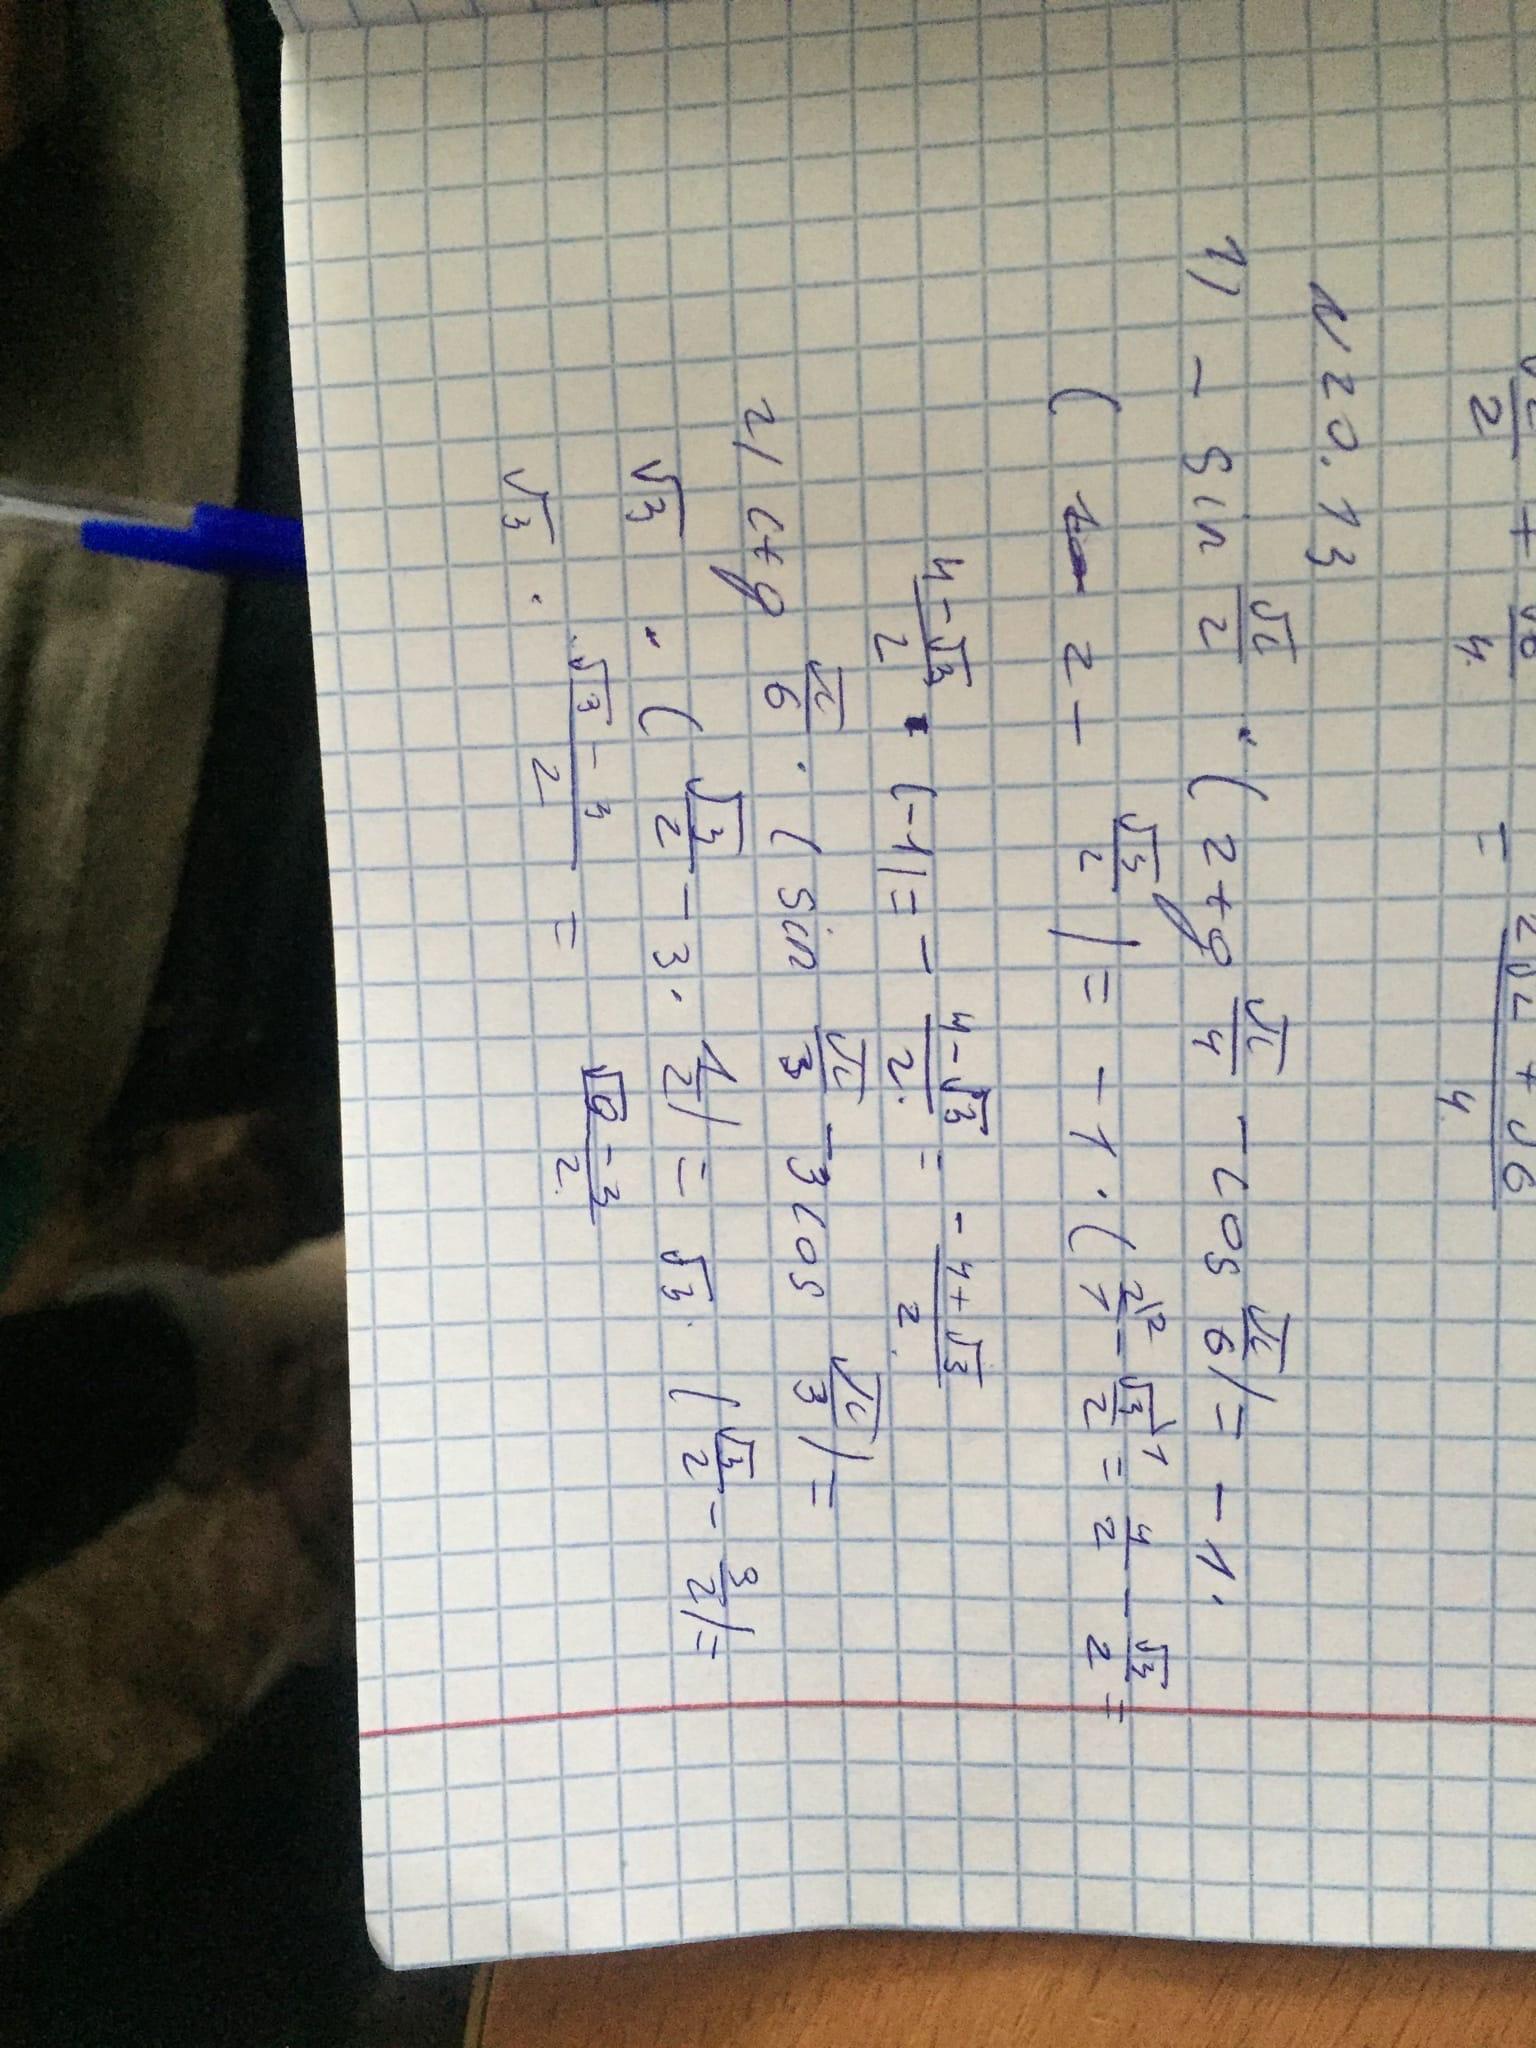 √2/2 + √6/4 = 2√2 + √6/4
N 20.13
1) - sin π/2 · (2tg π/4 - cos π/6) = -1·
(2 - √3/2) = -1·(2/1 - √3/2 = 4/2 - √3/2 =
4-√3/2 · (-1) = - 4-√3/2 = - 4+√3/2
2) ctg π/6 · (sin π/3 - 3cos π/3) =
√3 · (√3/2 - 3 · 1/2) = √3 · (√3/2 - 3/2) =
√3 · √3-3/2 = √9-3/2